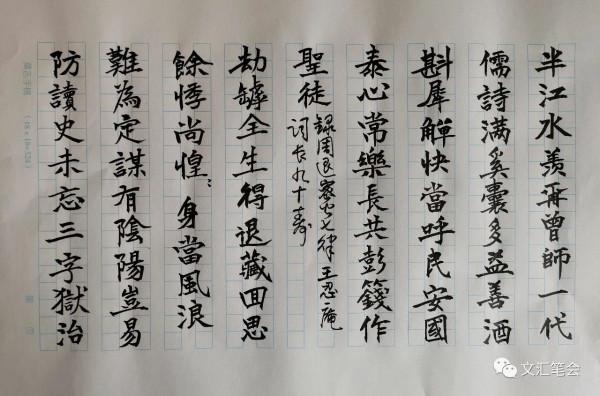 半江水羨再曾師一代
儒詩满奚囊多益善酒
斟犀觶快當呼民安國
泰心常樂長共彭籛作
聖徒
録周退密七律王忍庵
词长九十壽
劫罅全生得退藏回思
餘悸尚惶〻身當風浪
難為定謀有陰陽豈易
防讀史未忘三字獄治
文汇笔会